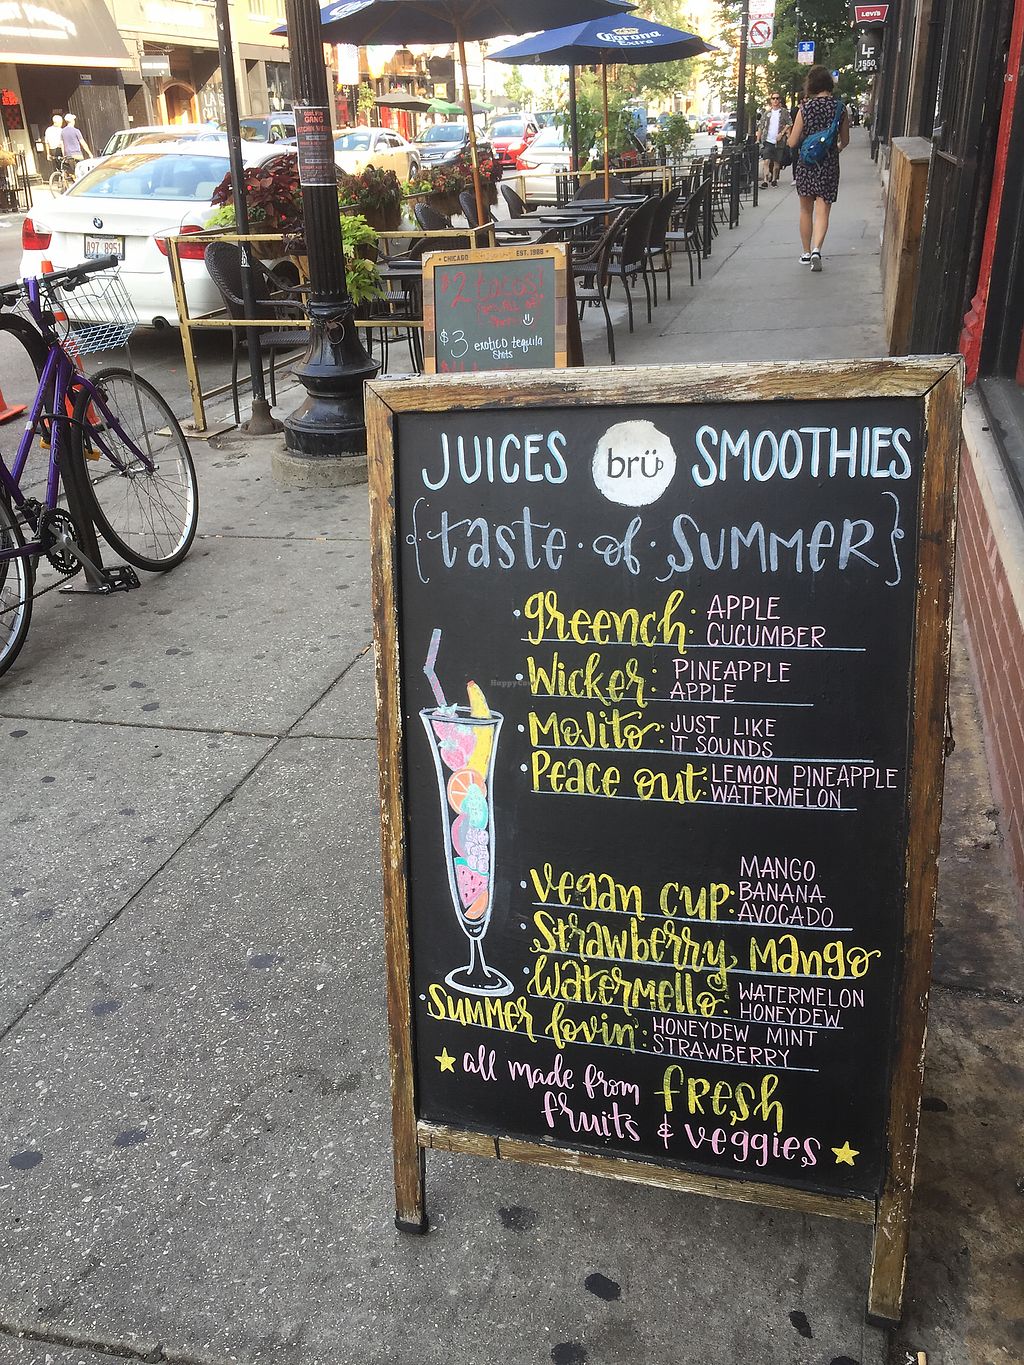 Corona
Extra
LEVI'S
LF
1550
A97 8951
CHICAGO EST. 1988
$2 tacos!
$3 exotico tequila
shots
JUICES brü SMOOTHIES
{taste of SUMMER}
greench: APPLE
CUCUMBER
Wicker: PINEAPPLE
APPLE
Mojito: JUST LIKE
IT SOUNDS
Peace out: LEMON PINEAPPLE
WATERMELON
vegan cup: MANGO
BANANA
AVOCADO
Strawberry Mango
Watermello: WATERMELON
HONEYDEW
Summer lovin': HONEYDEW MINT
STRAWBERRY
all made from fresh
fruits & veggies